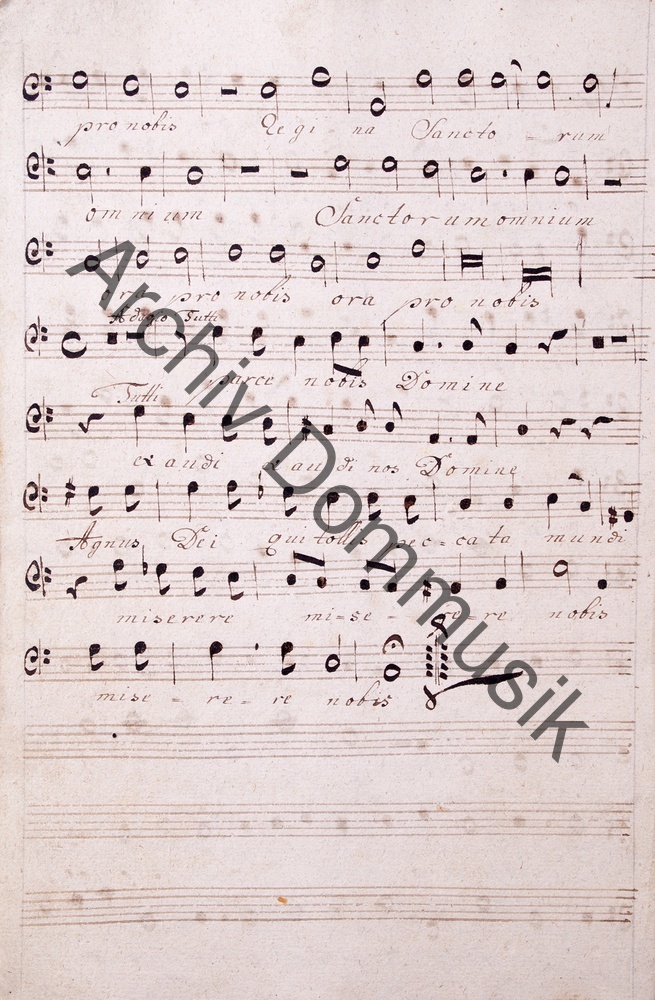 pro nobis Regi - na Sancto - rum
omnium. Sanctorum omnium
ora pro nobis ora pro nobis
Adagio Tutti
parce nobis Domine
Tutti
exaudi exaudi nos Domine
Agnus Dei qui tollis pec = cata mundi
miserere mi = se - re = re nobis
mise - re = re nobis
Archiv Dommusik